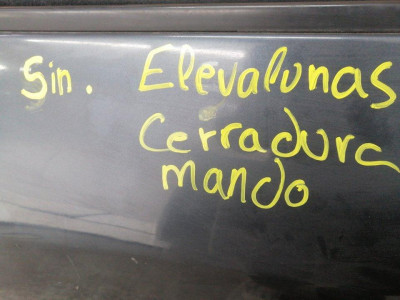 Sin. Elevalunas
Cerradura
mando